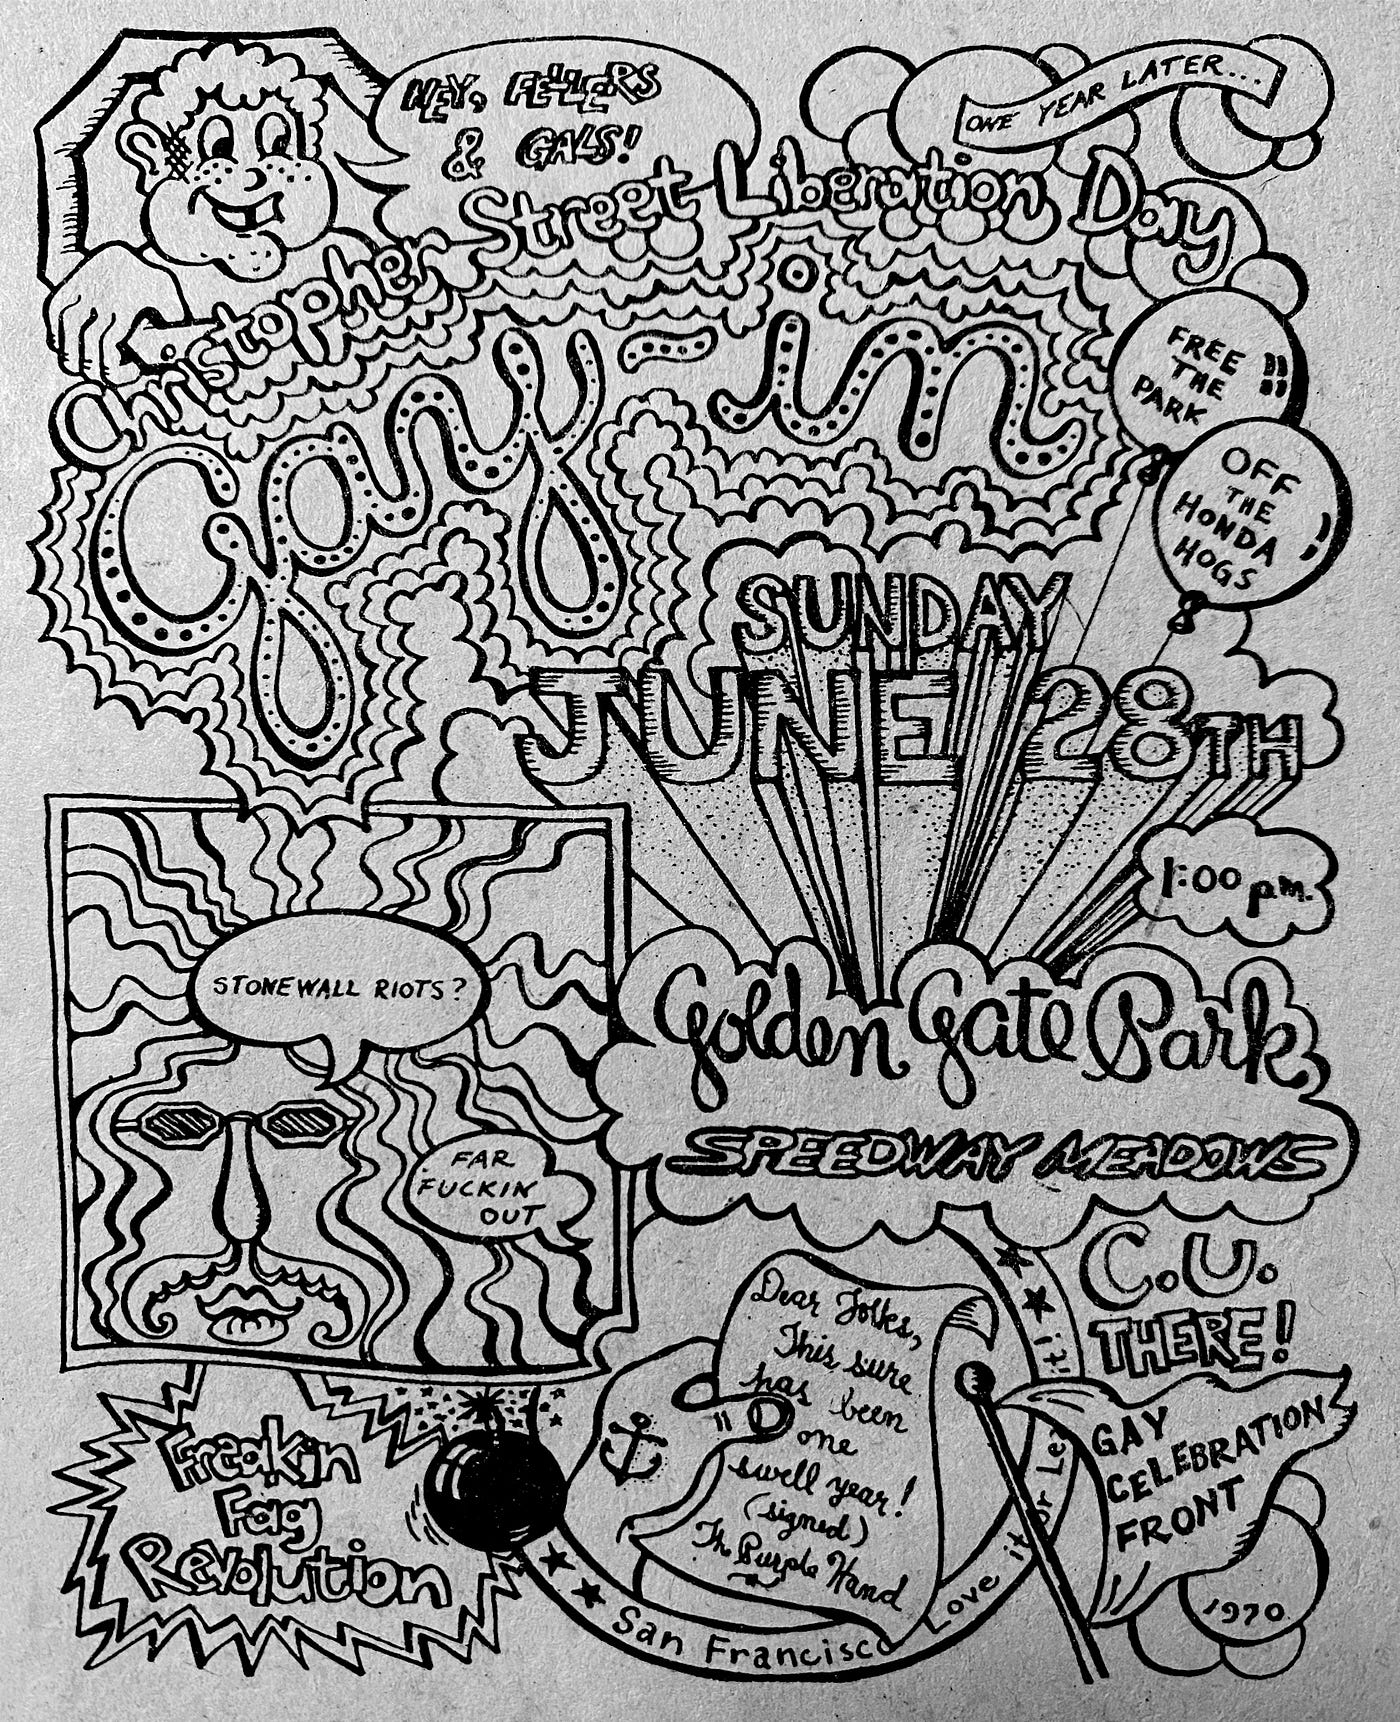 HEY, FELLERS
& GALS!
ONE YEAR LATER...
Christopher Street Liberation Day
Gay-in
FREE
THE
PARK
OFF
THE
HONDA
HOGS
SUNDAY
JUNE 28TH
1:00 p.m.
Golden Gate Park
SPEEDWAY MEADOWS
STONEWALL RIOTS?
FAR
FUCKIN
OUT
C.U.
THERE!
Dear Folks,
This sure
has been
one
swell year!
(signed)
The Purple Hand
GAY
CELEBRATION
FRONT
1970
Freakin
Fag
Revolution
San Francisco
Love it or Le
it!